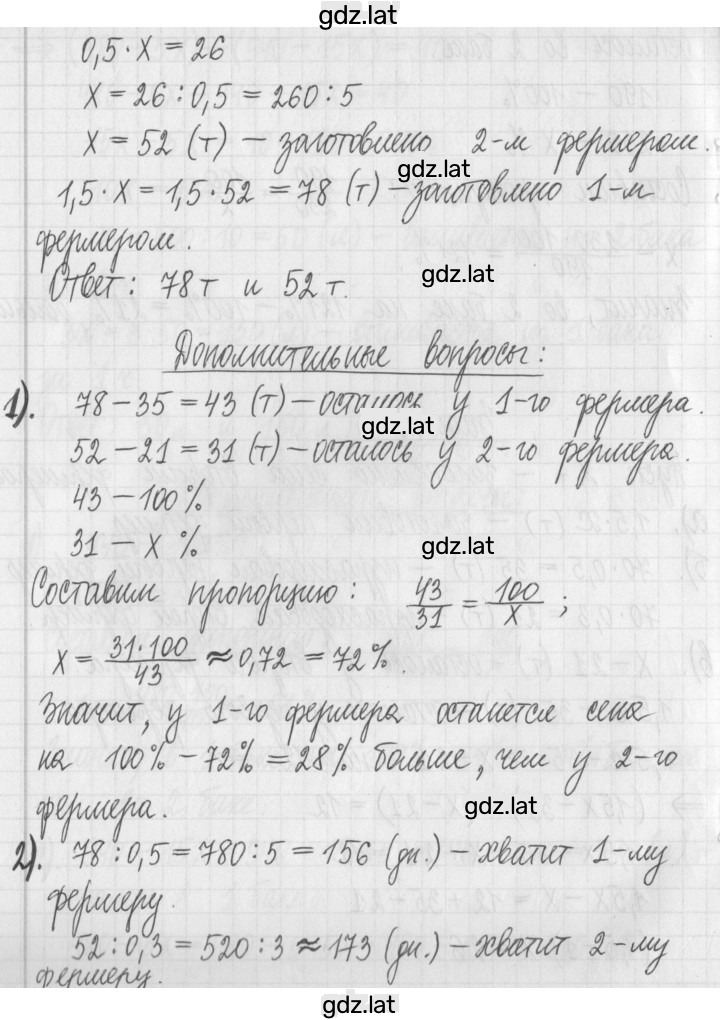 gdz.lat
0,5·x = 26
x = 26 : 0,5 = 260 : 5
x = 52 (т) – заготовлено 2-м фермером.
gdz.lat
1,5·x = 1,5·52 = 78 (т) – заготовлено 1-м
фермером.
gdz.lat
Ответ: 78 т и 52 т.
Дополнительные вопросы:
1). 78 – 35 = 43 (т) – осталось у 1-го фермера.
gdz.lat
52 – 21 = 31 (т) – осталось у 2-го фермера.
43 – 100 %
31 – x %
gdz.lat
Составим пропорцию: 43/31 = 100/x ;
x = 31·100/43 ≈ 0,72 = 72%.
Значит, у 1-го фермера останется сена
на 100% – 72% = 28% больше, чем у 2-го
фермера.
gdz.lat
2). 78 : 0,5 = 780 : 5 = 156 (дн.) – хватит 1-му
фермеру.
52 : 0,3 = 520 : 3 ≈ 173 (дн.) – хватит 2-му
фермеру.
gdz.lat